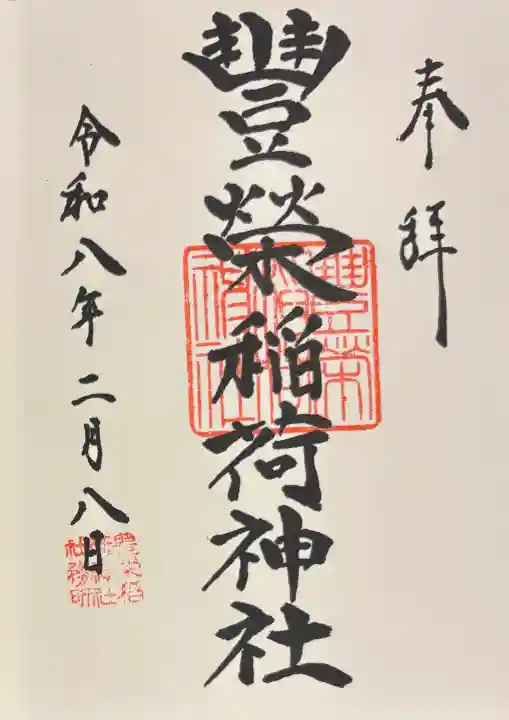 奉拝
豐榮稲荷神社
令和八年二月八日
豊栄稲荷神社
豊栄稲荷神社社務所